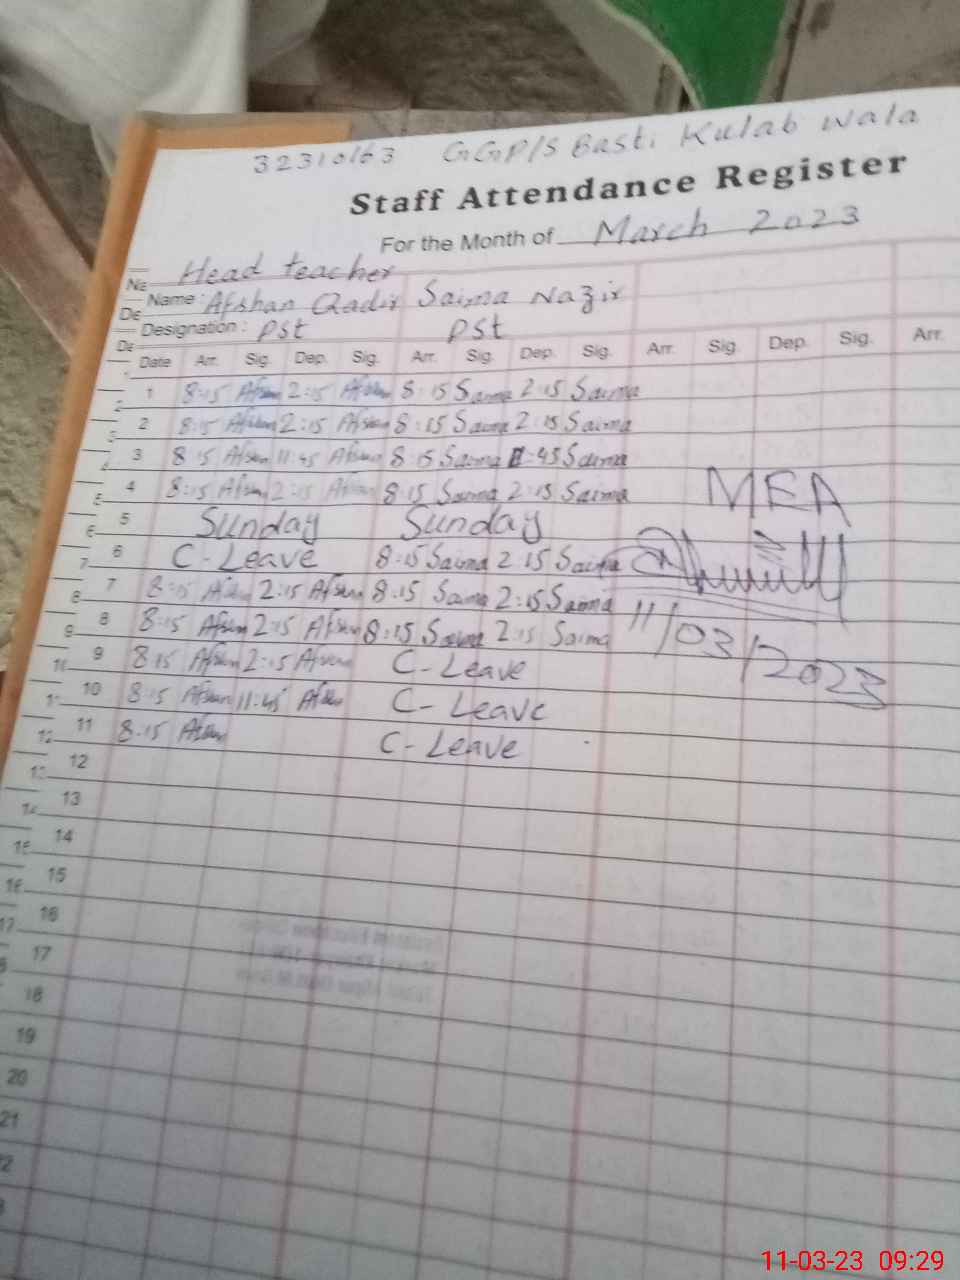 32310163 GGP/S Basti Kulab Wala
Staff Attendance Register
For the Month of March 2023
Head teacher
Name : Afshan Qadir Saima Nazir
Designation : PSt PSt
Date Arr. Sig. Dep. Sig. Arr. Sig. Dep. Sig. Arr. Sig. Dep. Sig. Arr.
1 8:15 Afshan 2:15 Afshan 8:15 Saima 2:15 Saima
2 8:15 Afshan 2:15 Afshan 8:15 Saima 2:15 Saima
3 8:15 Afshan 11:45 Afshan 8:15 Saima :45 Saima
4 8:15 Afshan 2:15 Afshan 8:15 Saima 2:15 Saima
MEA
5 Sunday Sunday
6 C-Leave 8:15 Saima 2:15 Saima
7 8:15 Afshan 2:15 Afshan 8:15 Saima 2:15 Saima
8 8:15 Afshan 2:15 Afshan 8:15 Saima 2:15 Saima
11/03/2023
9 8:15 Afshan 2:15 Afshan C-Leave
10 8:15 Afshan 11:45 Afshan C-Leave
11 8:15 Afshan C-Leave
12
13
14
15
16
17
18
19
20
21
11-03-23 09:29